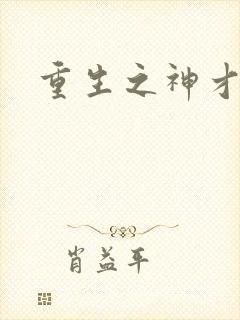 重生之神才
肖益平